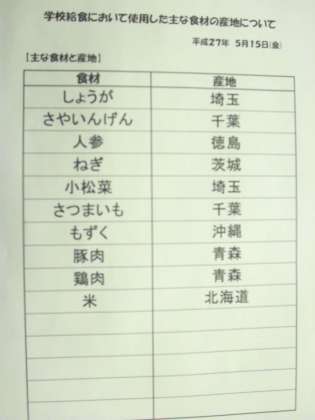 学校給食において使用した主な食材の産地について
平成27年 5月15日(金)
【主な食材と産地】
食材 産地
しょうが 埼玉
さやいんげん 千葉
人参 徳島
ねぎ 茨城
小松菜 埼玉
さつまいも 千葉
もずく 沖縄
豚肉 青森
鶏肉 青森
米 北海道